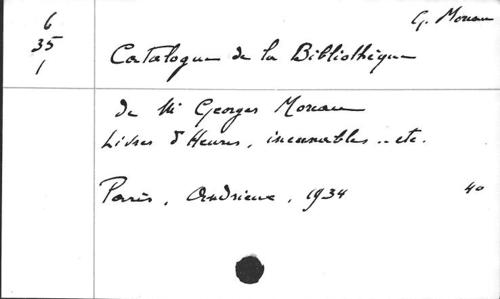 6
35
1
G. Moreau
Catalogue de la Bibliothèque
de Mr Georges Moreau
Livres d'Heures, incunables .. etc.
Paris, Andrieux, 1934 40